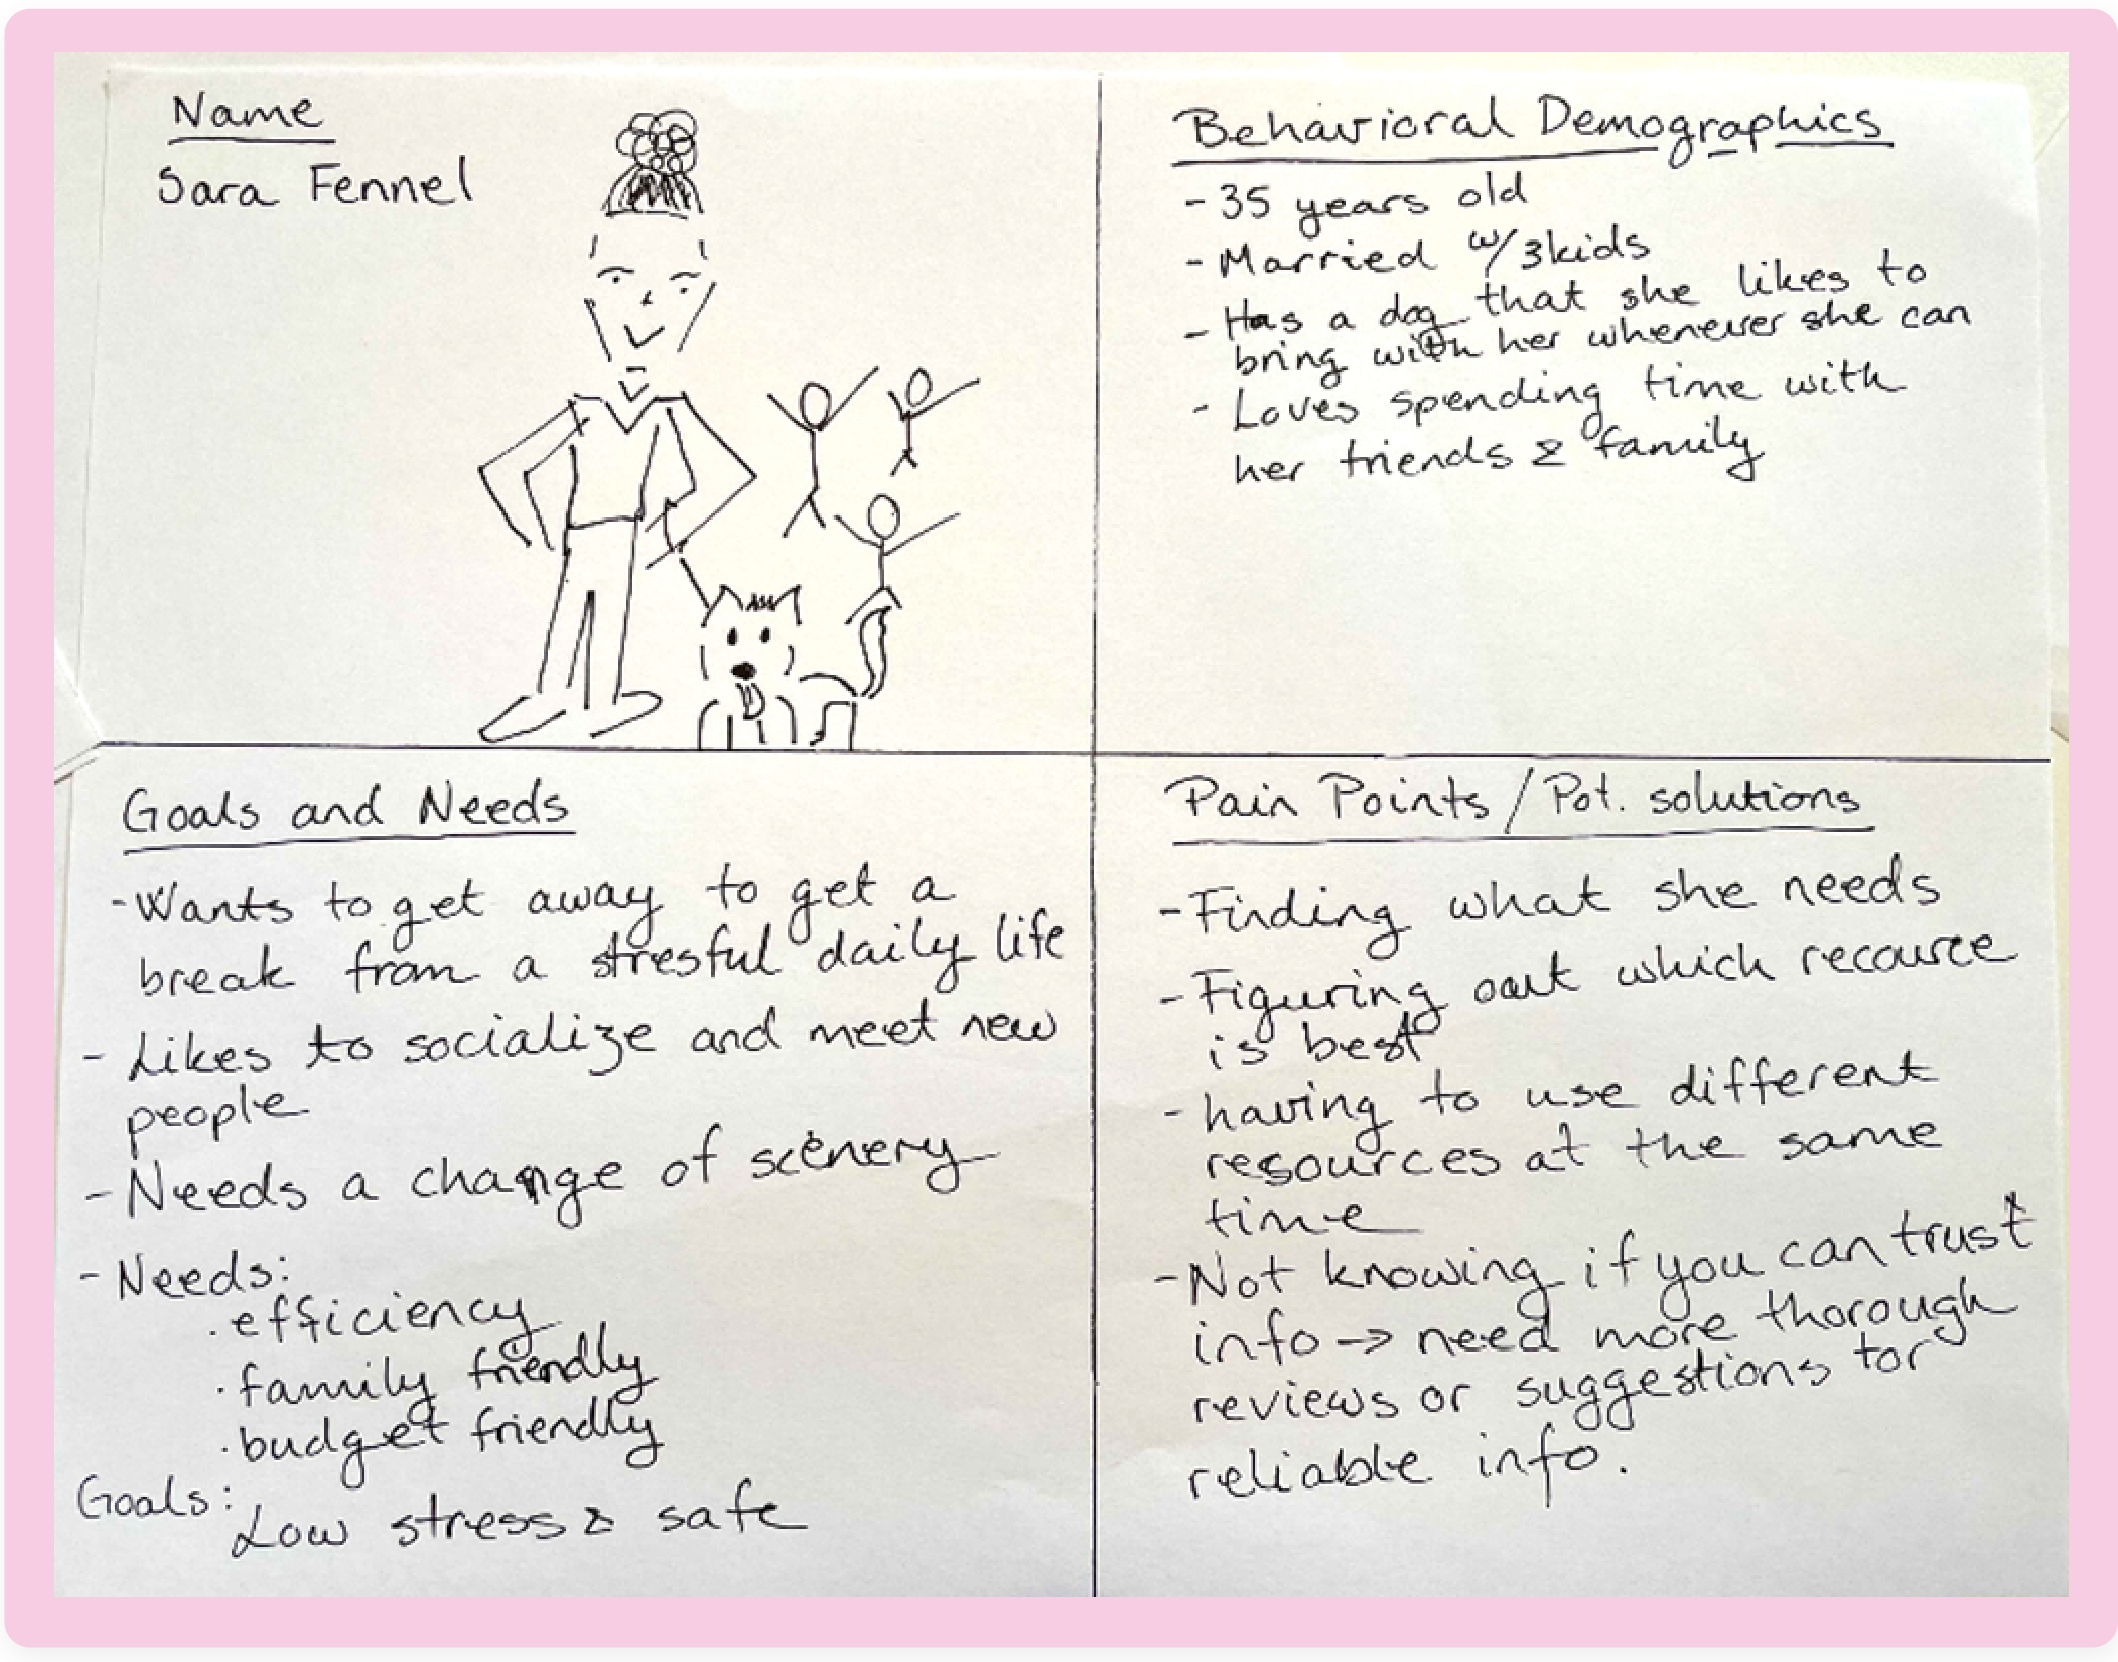 Name
Sara Fennel
Behavioral Demographics
- 35 years old
- Married w/ 3kids
- Has a dog that she likes to
bring with her whenever she can
- Loves spending time with
her friends & family
Goals and Needs
- Wants to get away to get a
break from a stresful daily life
- Likes to socialize and meet new
people
- Needs a change of scenery
- Needs:
· efficiency
· family friendly
· budget friendly
Goals:
Low stress & safe
Pain Points / Pot. solutions
- Finding what she needs
- Figuring out which recource
is best
- having to use different
resources at the same
time
- Not knowing if you can trust
info → need more thorough
reviews or suggestions for
reliable info.